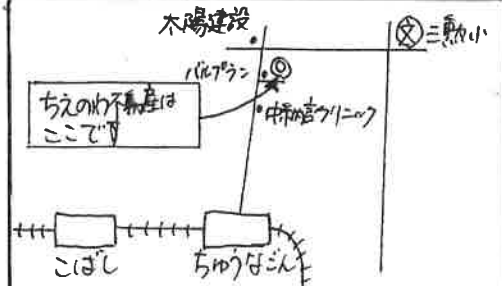 太陽建設
文 三勲小
バルブラン
ちえのわ不動産は
ここです
中納言クリニック
こばし
ちゅうなごん